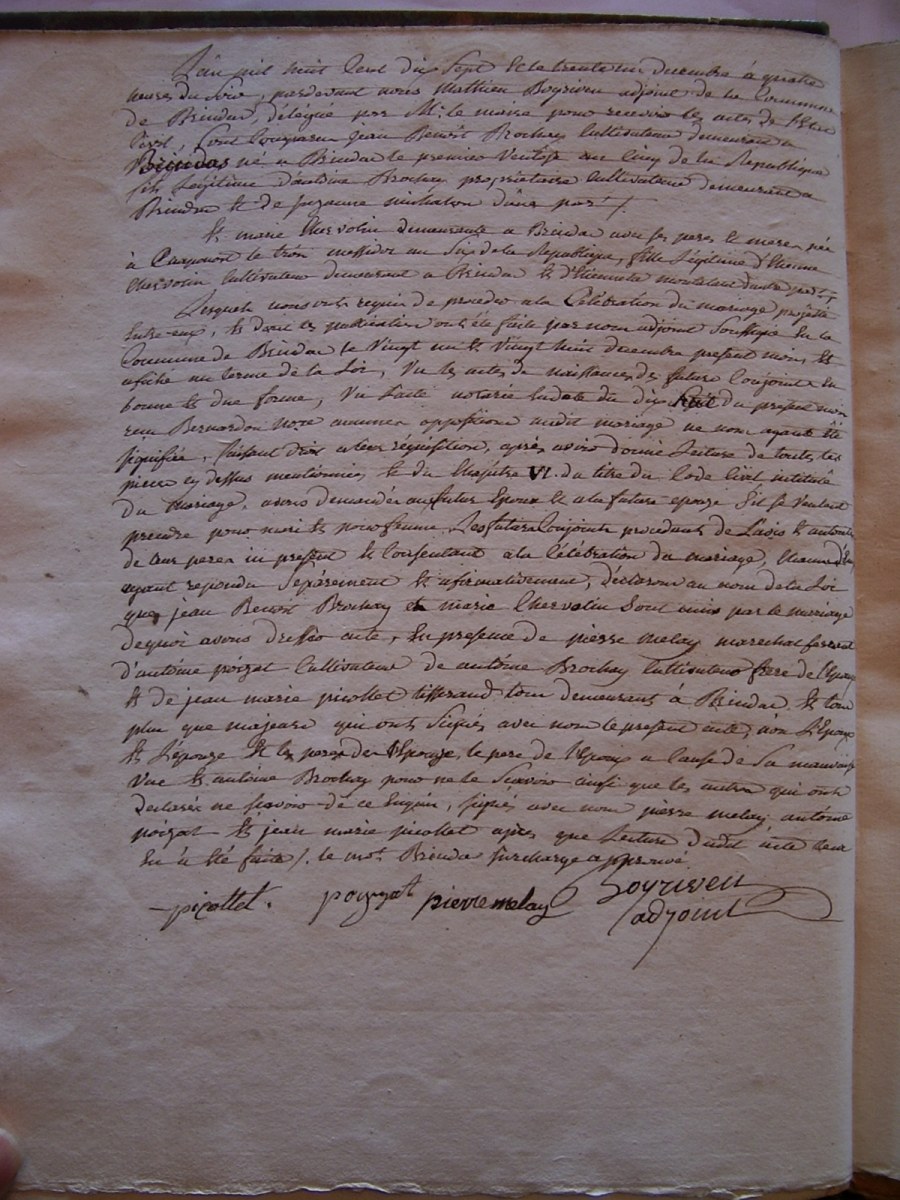 L'an mil huit Cent dix Sept & le trente un decembre à quatre
heures du Soir, pardevant nous Mathieu Boyriven adjoint de la Commune
de Brindas, délégué par Mr. le maire pour recevoir les actes de l'Etat
Civil, Sont Comparu jean Benoit Brochay Cultivateur demeurant a
Brindas né a Brindas le premier Ventose an Cinq de la Republique
fils Légitime d'antoine Brochay propriétaire Cultivateur demeurant a
Brindas & de suzanne d'une part /.
& marie Chervolin demeurante a Brindas avec ses pere & mere née
à le trois messidor an Six de la Republique, fille Légitime d'Etienne
Chervolin Cultivateur demeurant a Brindas & d'Etiennette d'autre part,
Lesquels nous ont requis de proceder a la Célébration du mariage projetté
Entre eux, & dont les publication ont été faite par nous adjoint Soussigné En la
Commune de Brindas le Vingt un & Vingt huit decembre present mois, &
afiché au terme de la Loi, Vu les actes de naissances des future Conjoints En
bonne & due forme, Vu L'acte notarié En date du dix huit du present mois
reçu Bernardon No.re aucune opposition audit mariage ne nous ayant été
signifiée, faisant droit a leur réquisition, après avoir donné Lecture de toutes les
pieces cy dessus mentionnées, & du Chapitre VI. du titre du Code Civil intitulé
du Mariage, avons demandé au futur Epoux & a la future epouse S'il se veulent
prendre pour mari & pour femme Les futurs Conjoints procedants de L'avis & autorité
de leur peres ici present & Consentant a la Célébration du mariage, Chacun d'eux
ayant repondu Séparement & afirmativement, déclarons au nom de la Loi
que jean Benoit Brochay & marie Chervolin Sont unis par le mariage
de quoi avons dressé acte, En presence de pierre melay marechal ferrant
d'antoine poizat Cultivateur de antoine Brochay Cultivateur frere de l'Epoux
& de jean marie picollet tisserand tous demeurant à Brindas. & tous
plus que majeurs qui ont Signés avec nous le present acte, non L'Epoux
& L'épouse & les peres de l'Epouse, le pere de l'Epoux a Cause de Sa mauvaise
Vue & antoine Brochay pour ne le Scavoir ainsi que les autres qui ont
déclarés ne scavoir de ce Enquis, Signés avec nous pierre melay antoine
poizat & jean marie picollet après que Lecture dudit acte leur
En a été faite /. le mot Brindas Surchargé approuvé
picollet. poyzat pierre melay Boyriven
adjoint